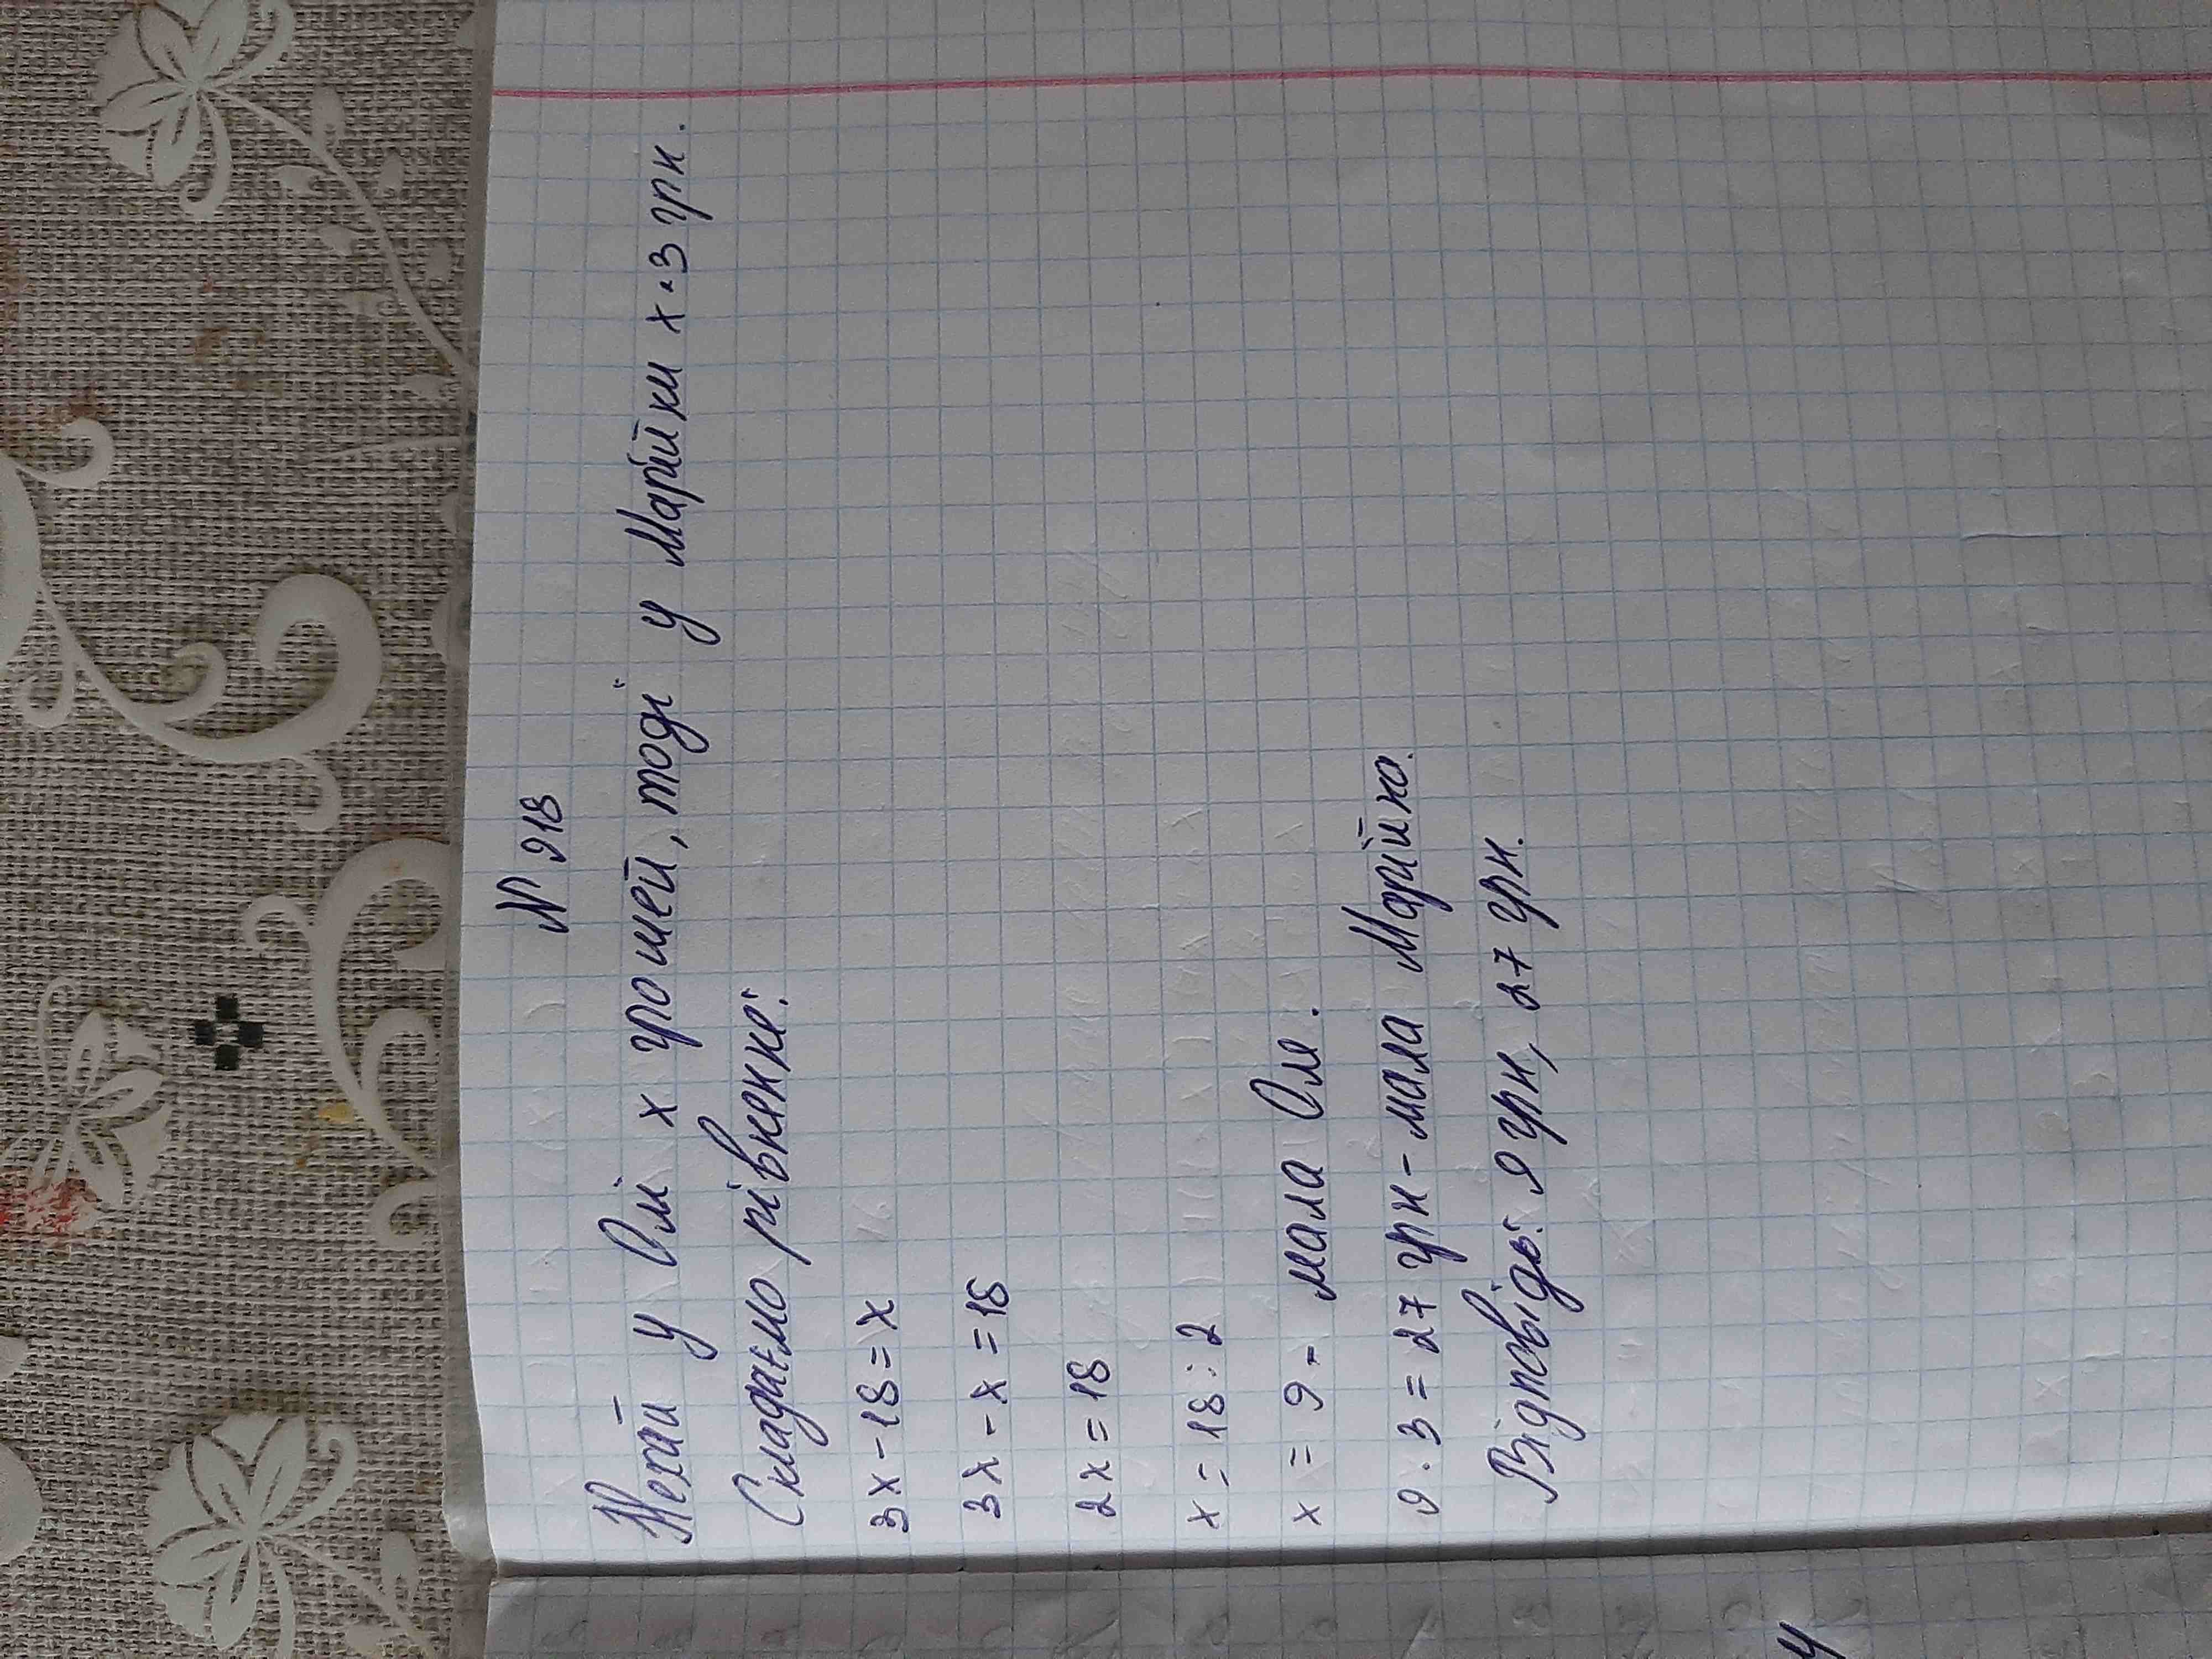 № 918
Нехай у Олі х грошей, тоді у Марійки х·3 грн.
Складаємо рівненне:
3х-18=х
3х-х=18
2х=18
х=18:2
х=9- мала Оля.
9·3=27 грн-мала Марійка.
Відповідь: 9 грн, 27 грн.